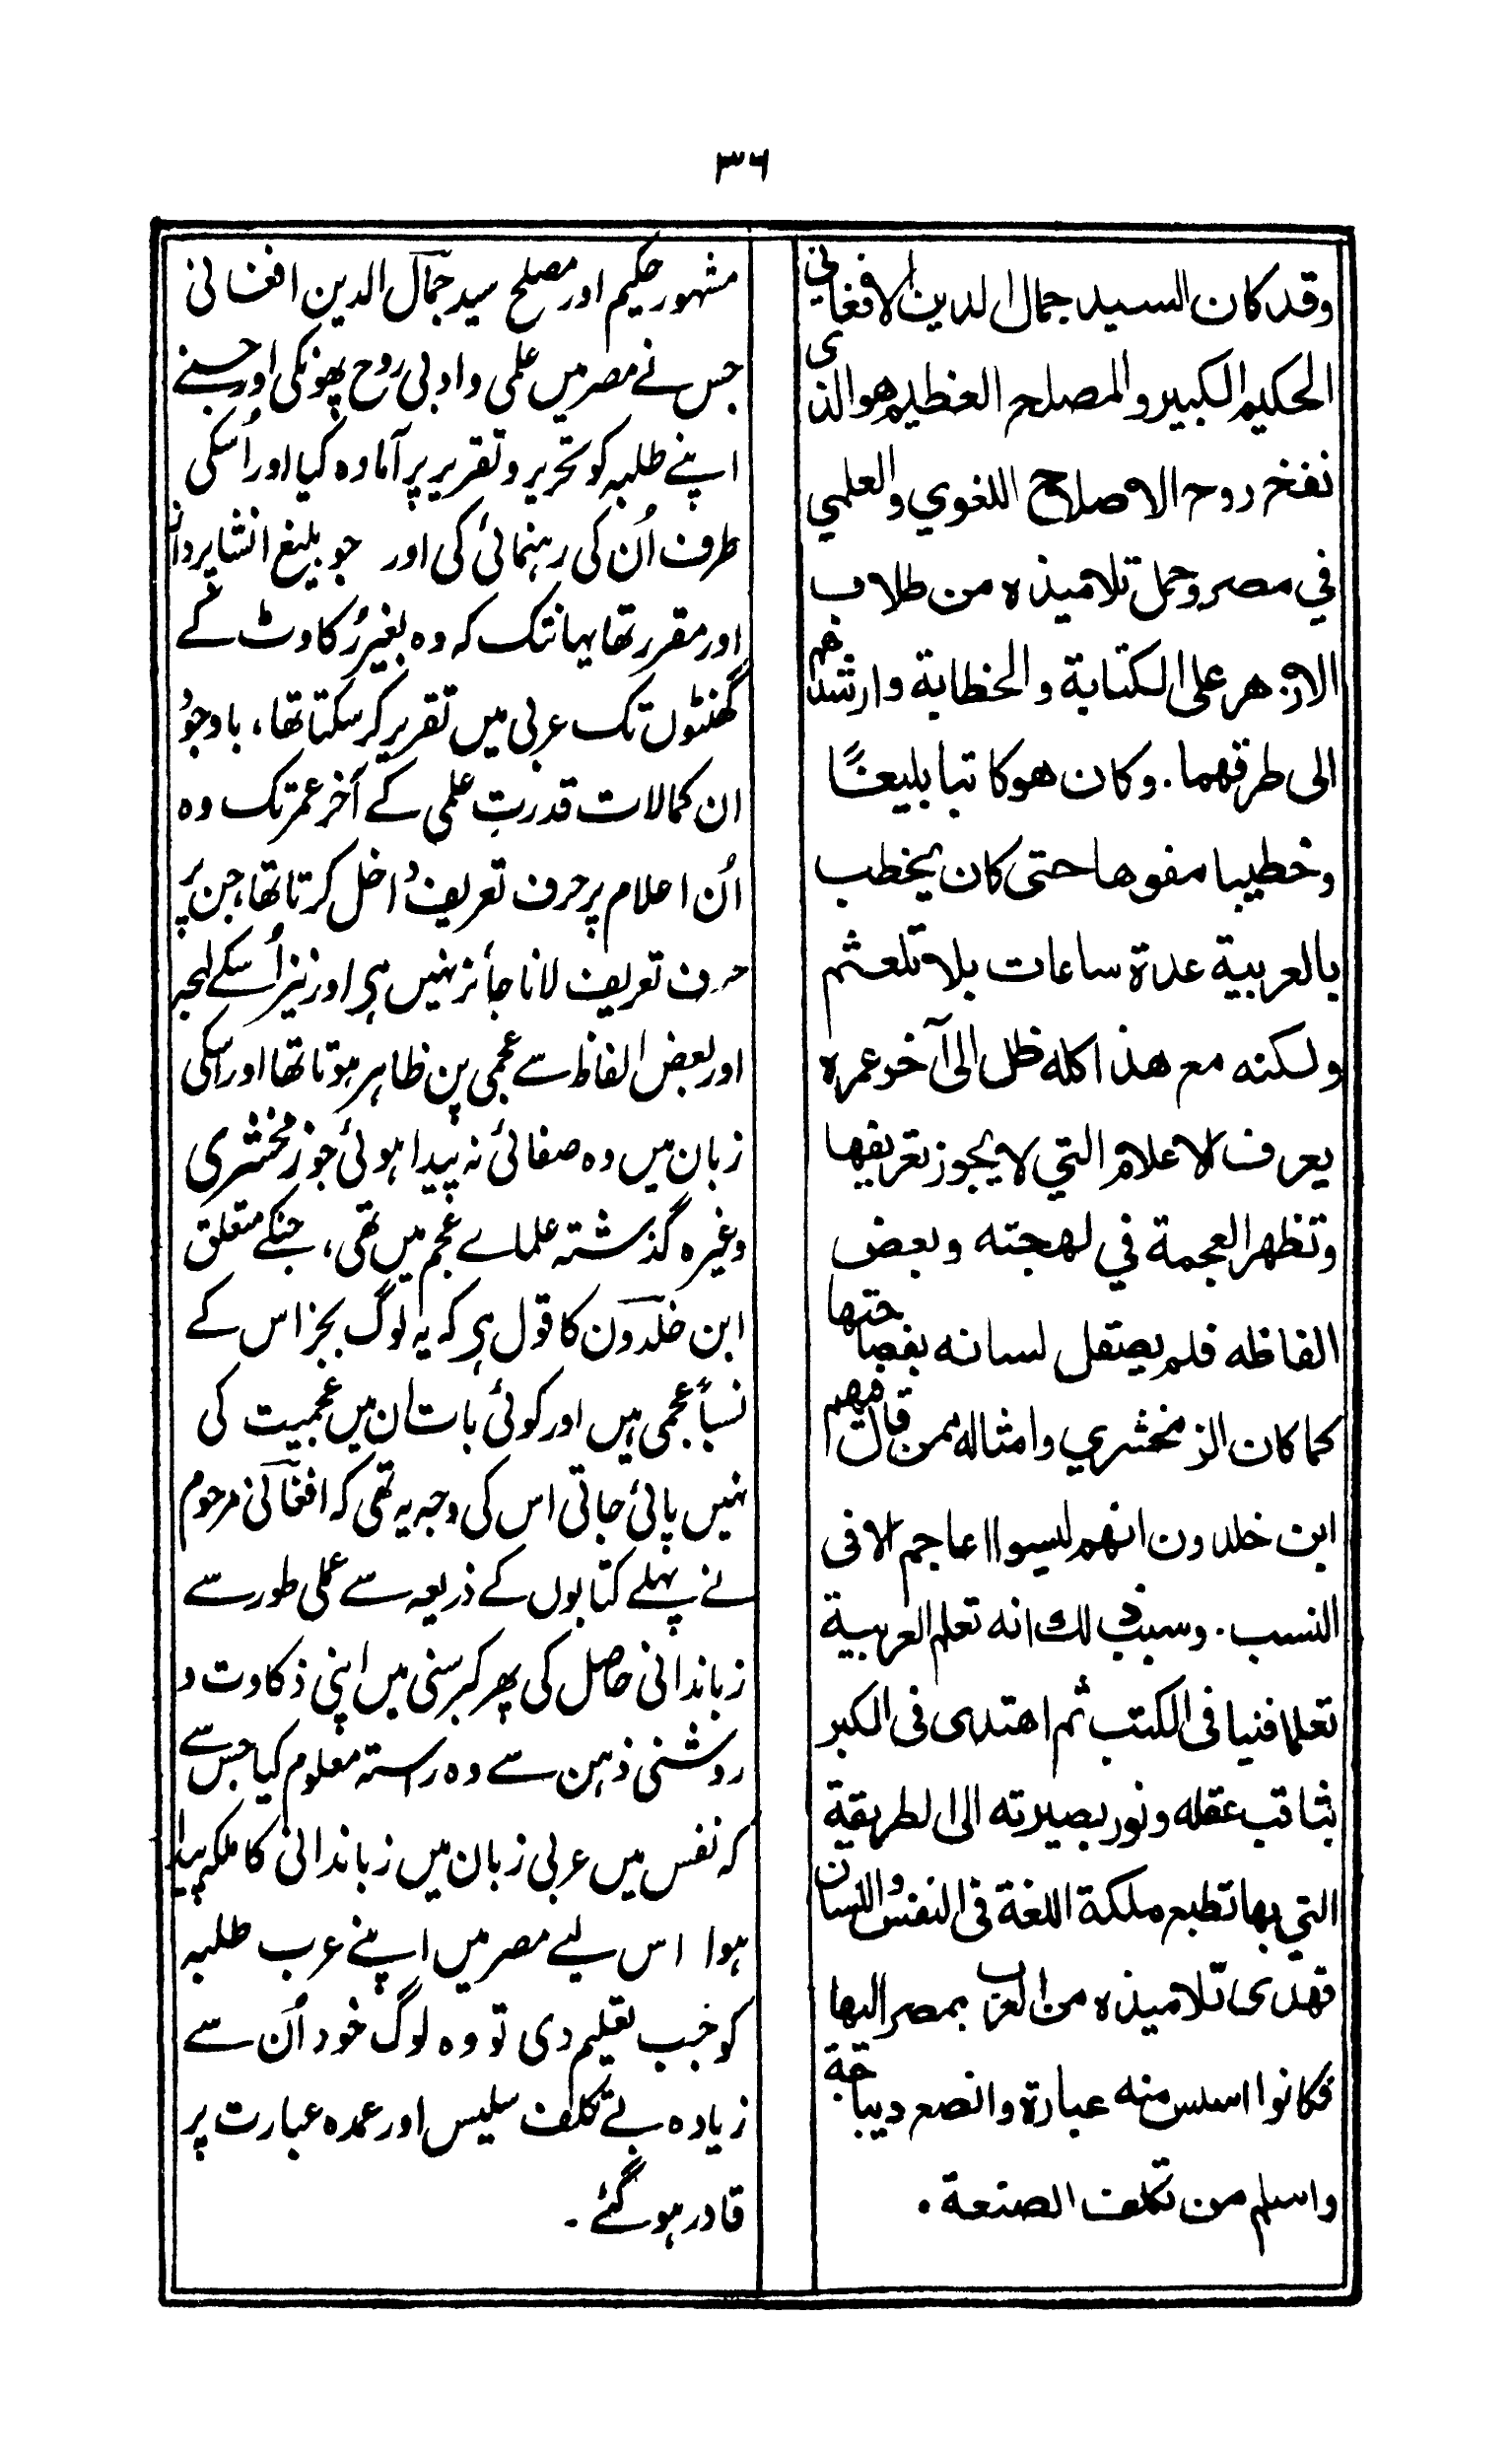 ٣٦
وقد كان السيد جمال الدين الافغاني
الحكيم الكبير والمصلح العظيم هو الذي
نفخ روح الاصلاح اللغوي والعلمي
في مصر وحمل تلاميذه من طلاب
الازهر على الكتابة والخطابة وارشدهم
الى طرقهما. وكان هو كاتبا بليغًا
وخطيبا مفوها حتى كان يخطب
بالعربية عدة ساعات بلا تلعثم
ولكنه مع هذا كله ظل الى آخر عمره
يعرف الاعلام التي لا يجوز تعريفها
وتظهر العجمة في لهجته وبعض
الفاظه فلم يصقل لسانه بفصاحتها
كما كان الزمخشري وامثاله ممن قال فيهم
ابن خلدون انهم ليسوا اعاجم الا فى
النسب. وسبب ذلك انه تعلم العربية
تعلما فنيا فى الكتب ثم اهتدى فى الكبر
بثاقب عقله ونور بصيرته الى الطريقة
التي بها تطبع ملكة اللغة فى النفس واللسان
فهدى تلاميذه من العرب بمصر اليها
فكانوا اسلس منه عبارة وانصع ديباجة
واسلم من تكلف الصنعة.
مشہور حکیم اور مصلح سید جمال الدین افغانی
جس نے مصر میں علمی و ادبی روح پھونکی اور جسنے
اپنے طلبہ کو تحریر و تقریر پر آمادہ کیا اور اُسکی
طرف اُن کی رہنمائی کی اور جو بلیغ انشا پرداز
اور مقرر تھا یہانتک کہ وہ بغیر رُکاوٹ کے
گھنٹوں تک عربی میں تقریر کر سکتا تھا، باوجود
ان کمالات قدرتِ علمی کے آخر عمر تک وہ
اُن اعلام پر حرف تعریف داخل کرتا تھا، جن پر
حرف تعریف لانا جائز نہیں ہی اور نیز اُسکے لہجہ
اور بعض الفاظ سے عجمی پن ظاہر ہوتا تھا اور اسکی
زبان میں وہ صفائی نہ پیدا ہوئی جو زمخشری
وغیرہ گذشتہ علماے عجم میں تھی، جنکے متعلق
ابن خلدون کا قول ہی کہ یہ لوگ بجز اس کے
نسباً عجمی ہیں اور کوئی بات ان میں عجمیت کی
نہیں پائی جاتی اس کی وجہ یہ تھی کہ افغانی مرحوم
نے پہلے کتابوں کے ذریعہ سے عملی طور سے
زباندانی حاصل کی پھر کبرسنی میں اپنی ذکاوت و
روشنی ذہن سے وہ راستہ معلوم کیا جس سے
کہ نفس میں عربی زبان میں زباندانی کا ملکہ پیدا
ہوا اس لیے مصر میں اپنے عرب طلبہ
کو جب تعلیم دی تو وہ لوگ خود اُن سے
زیادہ بے تکلف سلیس اور عمدہ عبارت پر
قادر ہو گئے۔